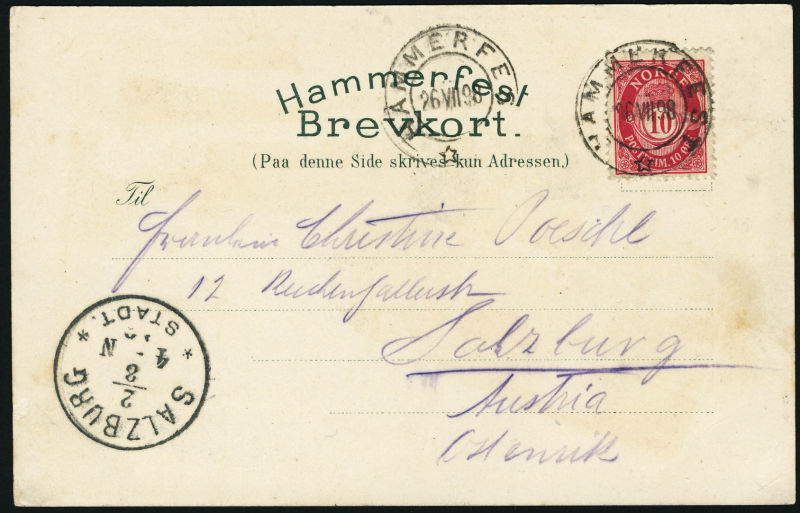 Hammerfest
Brevkort.
(Paa denne Side skrives kun Adressen.)
HAMMERFEST
26 VII 98
HAMMERFEST
26 VII 98
NORGE
10
POSTFRIM. 10 ØRE
Til
Fräulein Christine Poeschl
12 Reichenhallerstr
Salzburg
Austria
Östereich
SALZBURG
STADT.
2/8
4
N